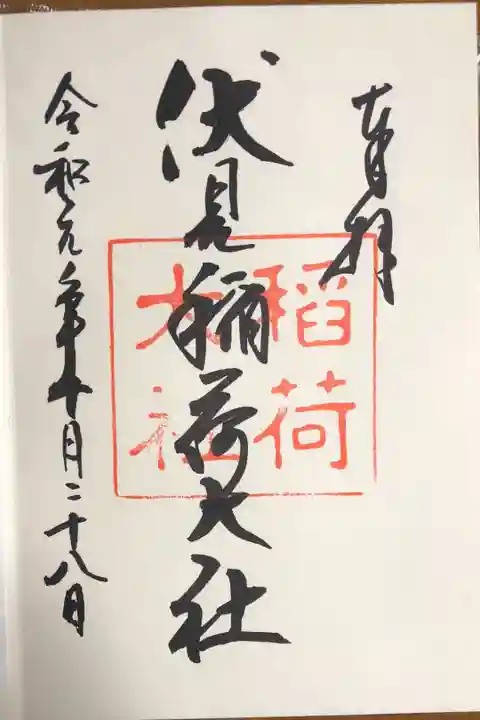 奉拝
伏見稲荷大社
稲荷
大社
令和元年十月二十八日